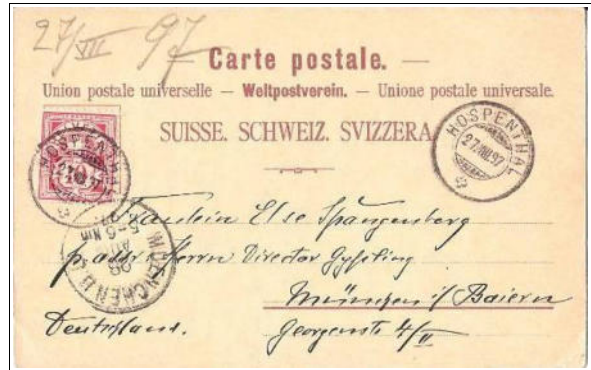 27/VIII 97
Carte postale.
Union postale universelle — Weltpostverein. — Unione postale universale.
SUISSE. SCHWEIZ. SVIZZERA.
HOSPENTHAL
27.VIII.97
HOSPENTHAL
27.VIII.97
MUENCHEN
5-6 Nm
28
AUG
Fräulein Else Spangenberg
p. addr. Herrn Director Gyßling
München i/Baiern
Deutschland. Georgenstr. 4/II